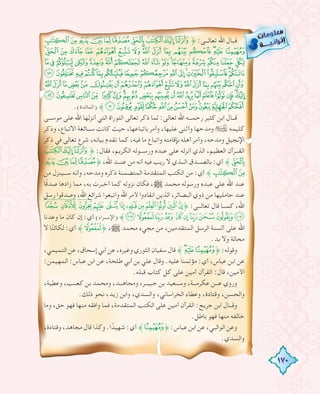 معلومات
إثرائية
قـال الله تعالى: ﴿ وَأَنزَلْنَآ إِلَيْكَ ٱلْكِتَٰبَ بِٱلْحَقِّ مُصَدِّقًا لِّمَا بَيْنَ يَدَيْهِ مِنَ ٱلْكِتَٰبِ
وَمُهَيْمِنًا عَلَيْهِ فَٱحْكُم بَيْنَهُم بِمَآ أَنزَلَ ٱللَّهُ وَلَا تَتَّبِعْ أَهْوَآءَهُمْ عَمَّا جَآءَكَ مِنَ ٱلْحَقِّ
لِكُلٍّ جَعَلْنَا مِنكُمْ شِرْعَةً وَمِنْهَاجًا وَلَوْ شَآءَ ٱللَّهُ لَجَعَلَكُمْ أُمَّةً وَٰحِدَةً وَلَٰكِن لِّيَبْلُوَكُمْ فِى مَآ
ءَاتَىٰكُمْ فَٱسْتَبِقُوا۟ ٱلْخَيْرَٰتِ إِلَى ٱللَّهِ مَرْجِعُكُمْ جَمِيعًا فَيُنَبِّئُكُم بِمَا كُنتُمْ فِيهِ تَخْتَلِفُونَ ﴿٤٨﴾
وَأَنِ ٱحْكُم بَيْنَهُم بِمَآ أَنزَلَ ٱللَّهُ وَلَا تَتَّبِعْ أَهْوَآءَهُمْ وَٱحْذَرْهُمْ أَن يَفْتِنُوكَ عَنۢ بَعْضِ مَآ أَنزَلَ ٱللَّهُ
إِلَيْكَ فَإِن تَوَلَّوْا۟ فَٱعْلَمْ أَنَّمَا يُرِيدُ ٱللَّهُ أَن يُصِيبَهُم بِبَعْضِ ذُنُوبِهِمْ وَإِنَّ كَثِيرًا مِّنَ ٱلنَّاسِ لَفَٰسِقُونَ ﴿٤٩﴾
أَفَحُكْمَ ٱلْجَٰهِلِيَّةِ يَبْغُونَ وَمَنْ أَحْسَنُ مِنَ ٱللَّهِ حُكْمًا لِّقَوْمٍ يُوقِنُونَ ﴿٥٠﴾ ﴾ (المائدة).
قال ابن كثير رحمـه الله تعالى: لما ذكر تعالى التوراة التي أنزلها الله على موسـى
كليمه ومدحها وأثنى عليها، وأمر باتباعها، حيث كانت سـائغة الاتباع، وذكر
الإنجيل ومدحه، وأمر أهله بإقامته واتباع ما فيه، كما تقدم بيانه، شرع تعالى في ذكر
القـرآن العظيـم، الذي أنزله على عبده ورسـوله الكريم، فقال: ﴿ وَأَنزَلْنَآ إِلَيْكَ ٱلْكِتَٰبَ
بِٱلْحَقِّ ﴾ أي: بالصـدق الـذي لا ريب فيه أنه من عنـد الله، ﴿ مُصَدِّقًا لِّمَا بَيْنَ يَدَيْهِ
مِنَ ٱلْكِتَٰبِ ﴾ أي: من الكتب المتقدمة المتضمنة ذكره ومدحه، وأنه سـينزل من
عند الله على عبده ورسوله محمد ﷺ، فكان نزوله كما أخبرت به، مما زادها صدقًا
عند حامليها من ذوي البصائر، الذين انقادوا لأمر الله واتبعوا شرائع الله، وصدقوا رسل
الله، كمـا قال تعالـى: ﴿ إِنَّ ٱلَّذِينَ أُوتُوا۟ ٱلْعِلْمَ مِن قَبْلِهِۦٓ إِذَا يُتْلَىٰ عَلَيْهِمْ يَخِرُّونَ لِلْأَذْقَانِ سُجَّدًا
﴿١٠٧﴾ وَيَقُولُونَ سُبْحَٰنَ رَبِّنَآ إِن كَانَ وَعْدُ رَبِّنَا لَمَفْعُولًا ﴿١٠٨﴾ ﴾ (الإسراء)، أي: إن كان ما وعدنا
الله على ألسنة الرسل المتقدمين، من مجيء محمد ﷺ، ﴿ لَمَفْعُولًا ﴾ أي: لكائنًا لا
محالة ولا بد.
وقوله: ﴿ وَمُهَيْمِنًا عَلَيْهِ ﴾ قال سفيان الثوري وغيره، عن أبي إسحاق، عن التميمي،
عن ابن عباس، أي: مؤتمنا عليه. وقال علي بن أبي طلحة، عن ابن عباس: المهيمن:
الأمين، قال: القرآن أمين على كل كتاب قبله.
وروي عـن عكرمـة، وسـعيد بن جبيـر، ومجاهـد، ومحمد بن كعـب، وعطية،
والحسن، وقتادة، وعطاء الخراساني، والسدي، وابن زيد، نحو ذلك.
وقـال ابن جريج: القرآن أمين على الكتب المتقدمة، فما وافقه منها فهو حق، وما
خالفه منها فهو باطل.
وعن الوالبي، عن ابن عباس: ﴿ وَمُهَيْمِنًا ﴾ أي: شهيدًا. وكذا قال مجاهد، وقتادة،
والسدي.
١٧٠